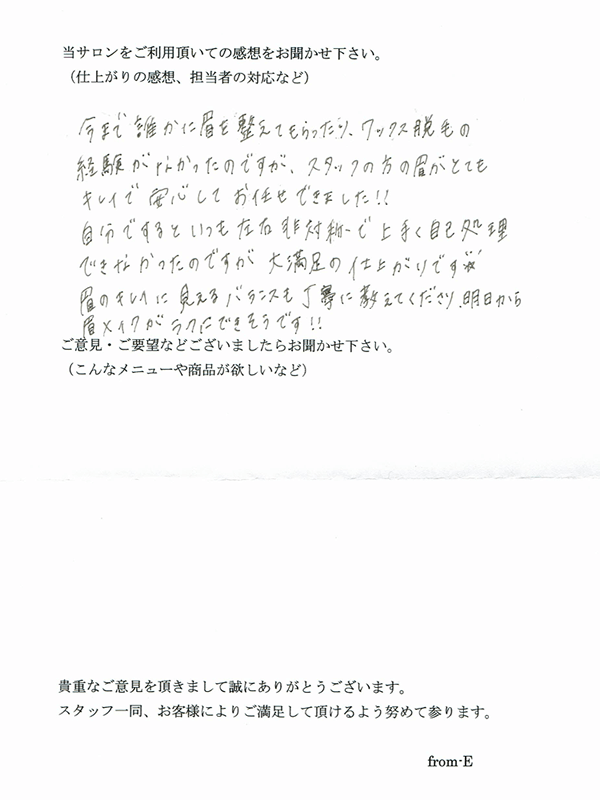 当サロンをご利用頂いての感想をお聞かせ下さい。
（仕上がりの感想、担当者の対応など）
今まで誰かに眉を整えてもらったり、ワックス脱毛の
経験がなかったのですが、スタッフの方の眉がとても
キレイで安心してお任せできました!!
自分ですると いつも左右非対称で上手く自己処理
できなかったのですが 大満足の仕上がりです☆
眉のキレイに見えるバランスも丁寧に教えてくださり、明日から
眉メイクがラクにできそうです!!
ご意見・ご要望などございましたらお聞かせ下さい。
（こんなメニューや商品が欲しいなど）
貴重なご意見を頂きまして誠にありがとうございます。
スタッフ一同、お客様によりご満足して頂けるよう努めて参ります。
from-E